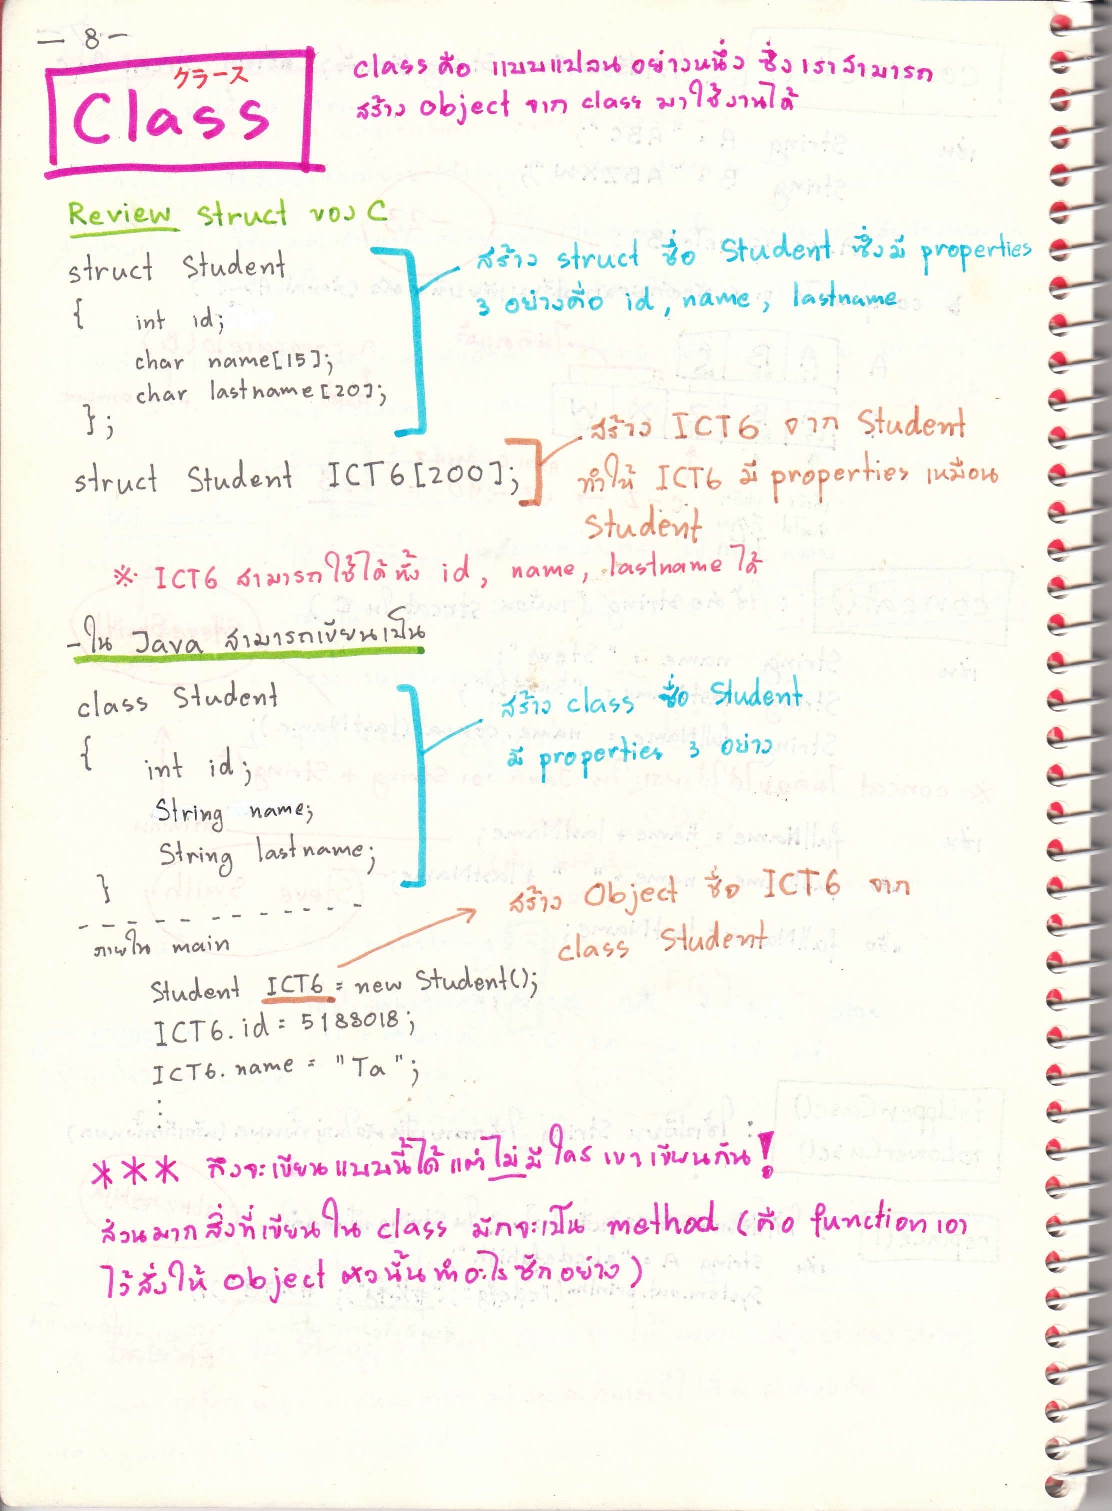 - 8 -
クラース
Class
class คือ แบบแปลนอย่างหนึ่ง ซึ่งเราสามารถ
สร้าง object จาก class มาใช้งานได้
Review struct ของ C
struct Student
{ int id;
char name[15];
char lastname[20];
};
สร้าง struct ชื่อ Student ซึ่งมี properties
3 อย่างคือ id, name, lastname
struct Student ICT6[200];
สร้าง ICT6 จาก Student
ทำให้ ICT6 มี properties เหมือน
Student
※ ICT6 สามารถใช้ได้ทั้ง id, name, lastname ได้
- ใน Java สามารถเขียนเป็น
class Student
{ int id;
String name;
String lastname;
}
สร้าง class ชื่อ Student
มี properties 3 อย่าง
ภายใน main
Student ICT6 = new Student();
ICT6.id = 5188018;
ICT6.name = "Ta";
สร้าง Object ชื่อ ICT6 จาก
class Student
*** ถึงจะเขียนแบบนี้ได้ แต่ไม่มีใครเขาเขียนกัน!
ส่วนมากสิ่งที่เขียนใน class มักจะเป็น method (คือ function เอา
ไว้สั่งให้ object ตัวนั้นทำอะไรซักอย่าง)